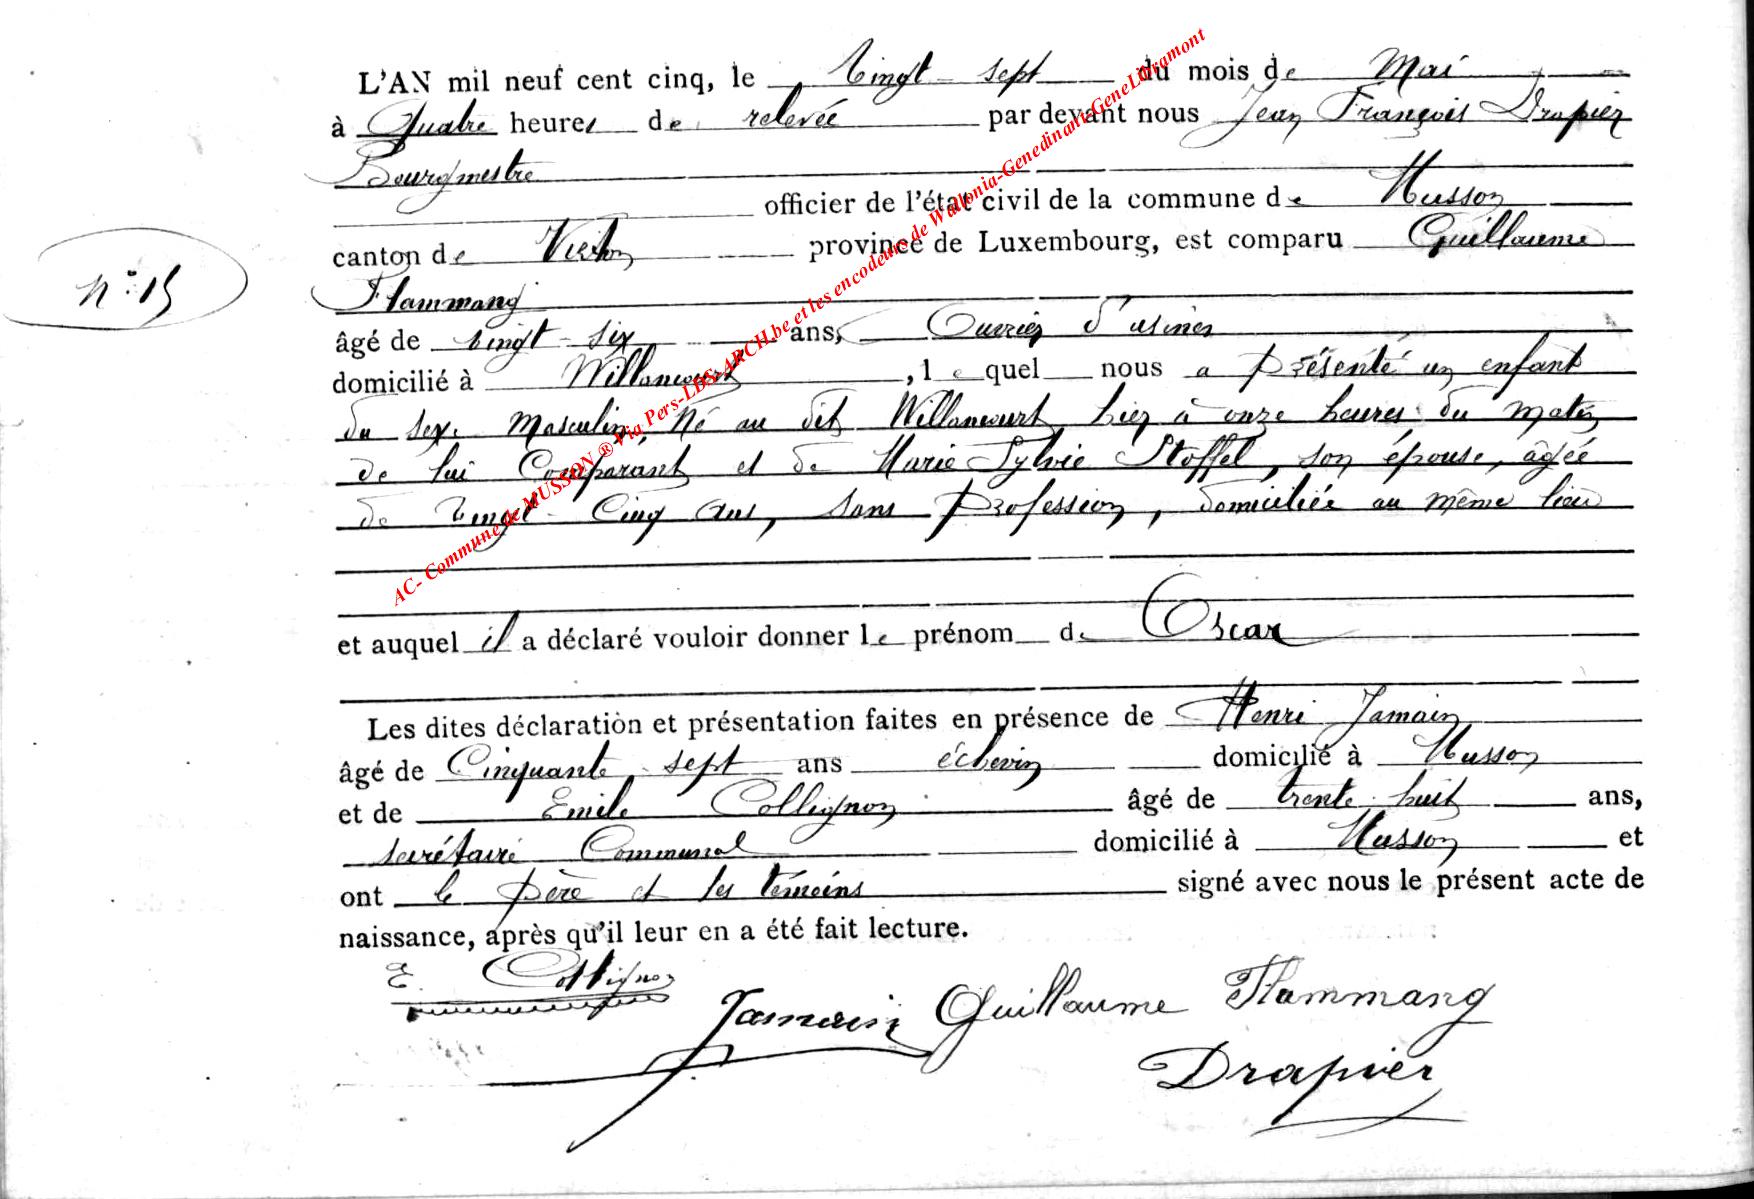 L'AN mil neuf cent cinq, le Vingt-sept du mois de Mai
à Quatre heures de relevée par devant nous Jean François Drapier
Bourgmestre
officier de l'état civil de la commune de Musson
canton de Virton province de Luxembourg, est comparu Guillaume
Flammang
âgé de vingt-six ans, Ouvrier d'usines
domicilié à Willancourt, lequel nous a présenté un enfant
du sexe Masculin, Né au dit Willancourt hier à onze heures du matin
de lui Comparant et de Marie-Sylvie Stoffel, son épouse, âgée
de Vingt-Cinq ans, sans profession, domiciliée au même lieu
et auquel il a déclaré vouloir donner le prénom de Oscar
Les dites déclaration et présentation faites en présence de Henri Jamain
âgé de Cinquante-sept ans échevin domicilié à Musson
et de Emile Collignon âgé de trente-huit ans,
secrétaire Communal domicilié à Musson et
ont le père et les témoins signé avec nous le présent acte de
naissance, après qu'il leur en a été fait lecture.
N° 15
E. Collignon
Jamain Guillaume Flammang
Drapier
AC- Commune de MUSSON ® Via Pers-LDS-ARCH.be et les encodeurs de Wallonia-Genedinant-GeneLibramont